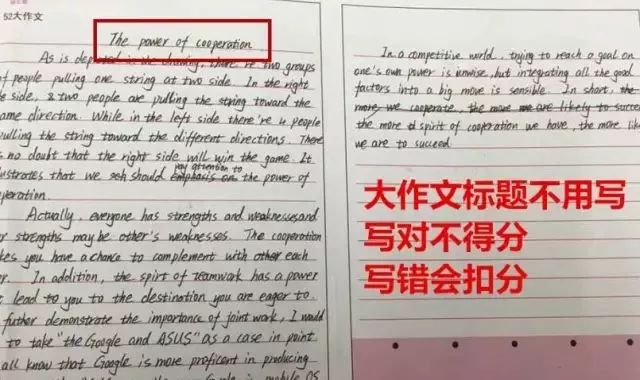 52大作文
The power of cooperation
As is depicted in the drawing, there're two groups
of people pulling one string at two side. In the right
side, 2 two people are pulling the string toward the
ame direction. While in the left side there're 4 people
ulling the string toward the different directions. There
s no doubt that the right side will win the game. It
ustrates that we should pay attention to emphasis on the power of
operation.
Actually, everyone has strengths and weaknesses and
r strengths may be other's weaknesses. The cooperation
kes you have a chance to complement with other each
r. In addition, the spirt of teamwork has a power
t lead to you to the destination you are eager to.
futher demonstrate the importance of joint work, I would
to take "the Google and ASUS" as a case in point.
all know that Google is more proficent in producing
In a competitive world, trying to reach a goal on
one's own power is unwise, but integrating all the good
factors into a big move is sensible. In short, the
more we cooperate, the more we are likely to succe
the more spirit of cooperation we have, the more like
we are to succeed
大作文标题不用写
写对不得分
写错会扣分